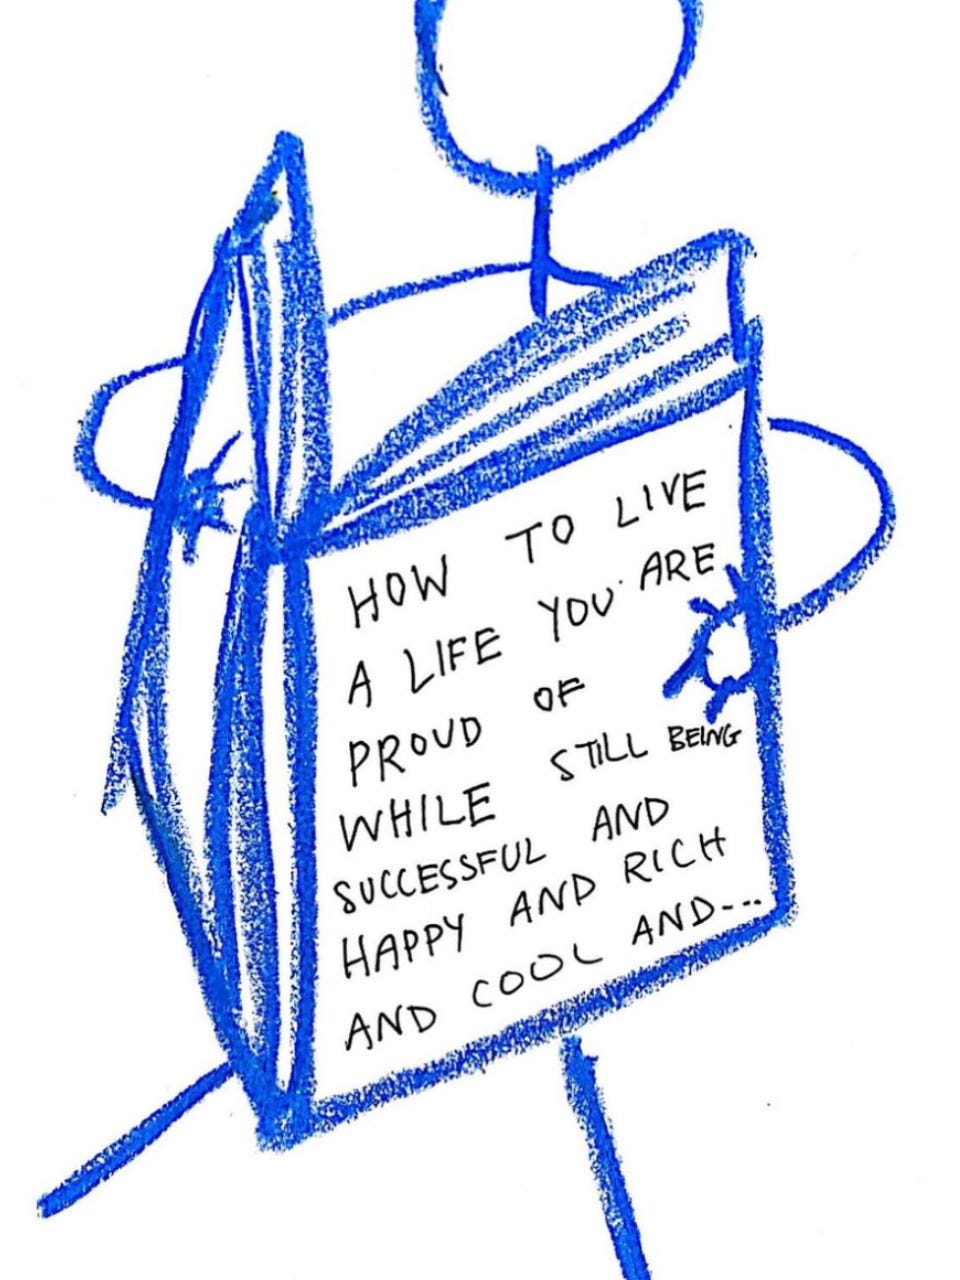 HOW TO LIVE
A LIFE YOU ARE
PROUD OF
WHILE STILL BEING
SUCCESSFUL AND
HAPPY AND RICH
AND COOL AND---